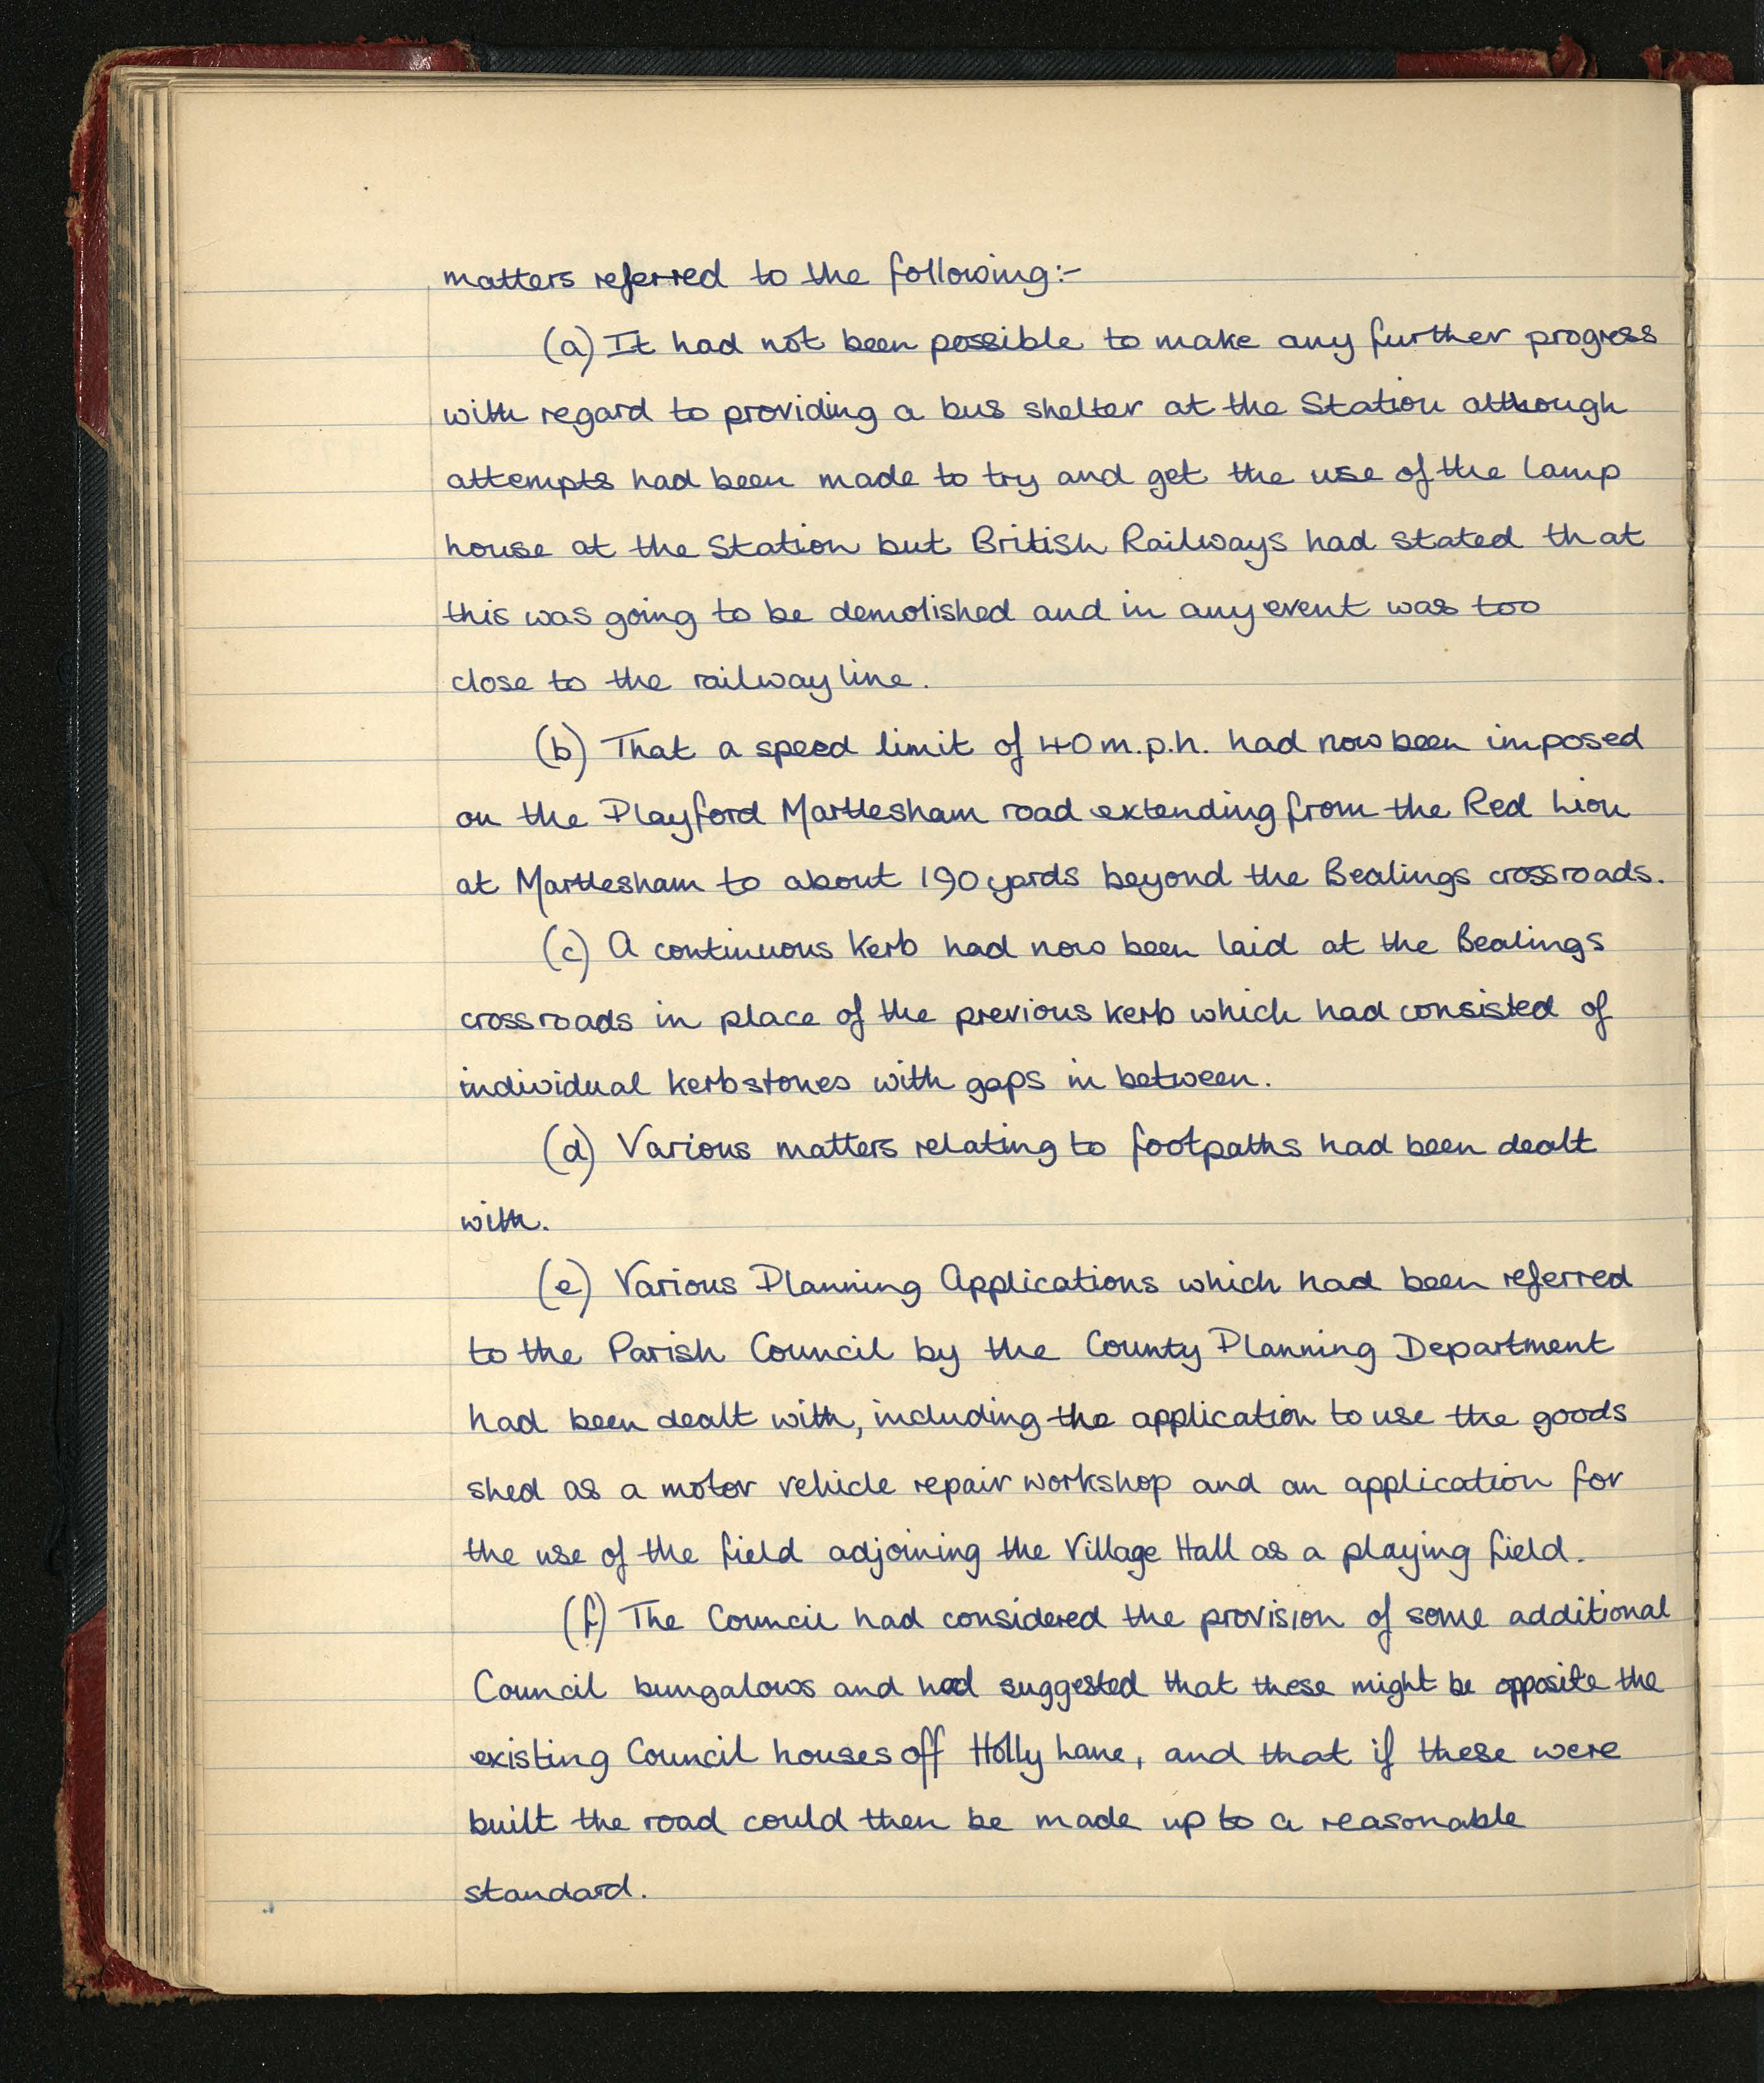 matters referred to the following:-
(a) It had not been possible to make any further progress
with regard to providing a bus shelter at the Station although
attempts had been made to try and get the use of the lamp
house at the Station but British Railways had stated that
this was going to be demolished and in any event was too
close to the railway line.
(b) That a speed limit of 40 m.p.h. had now been imposed
on the Playford Martlesham road extending from the Red Lion
at Martlesham to about 190 yards beyond the Bealings crossroads.
(c) A continuous kerb had now been laid at the Bealings
crossroads in place of the previous kerb which had consisted of
individual kerbstones with gaps in between.
(d) Various matters relating to footpaths had been dealt
with.
(e) Various Planning Applications which had been referred
to the Parish Council by the County Planning Department
had been dealt with, including the application to use the goods
shed as a motor vehicle repair workshop and an application for
the use of the field adjoining the Village Hall as a playing field.
(f) The Council had considered the provision of some additional
Council bungalows and had suggested that these might be opposite the
existing Council houses off Holly Lane, and that if these were
built the road could then be made up to a reasonable
standard.